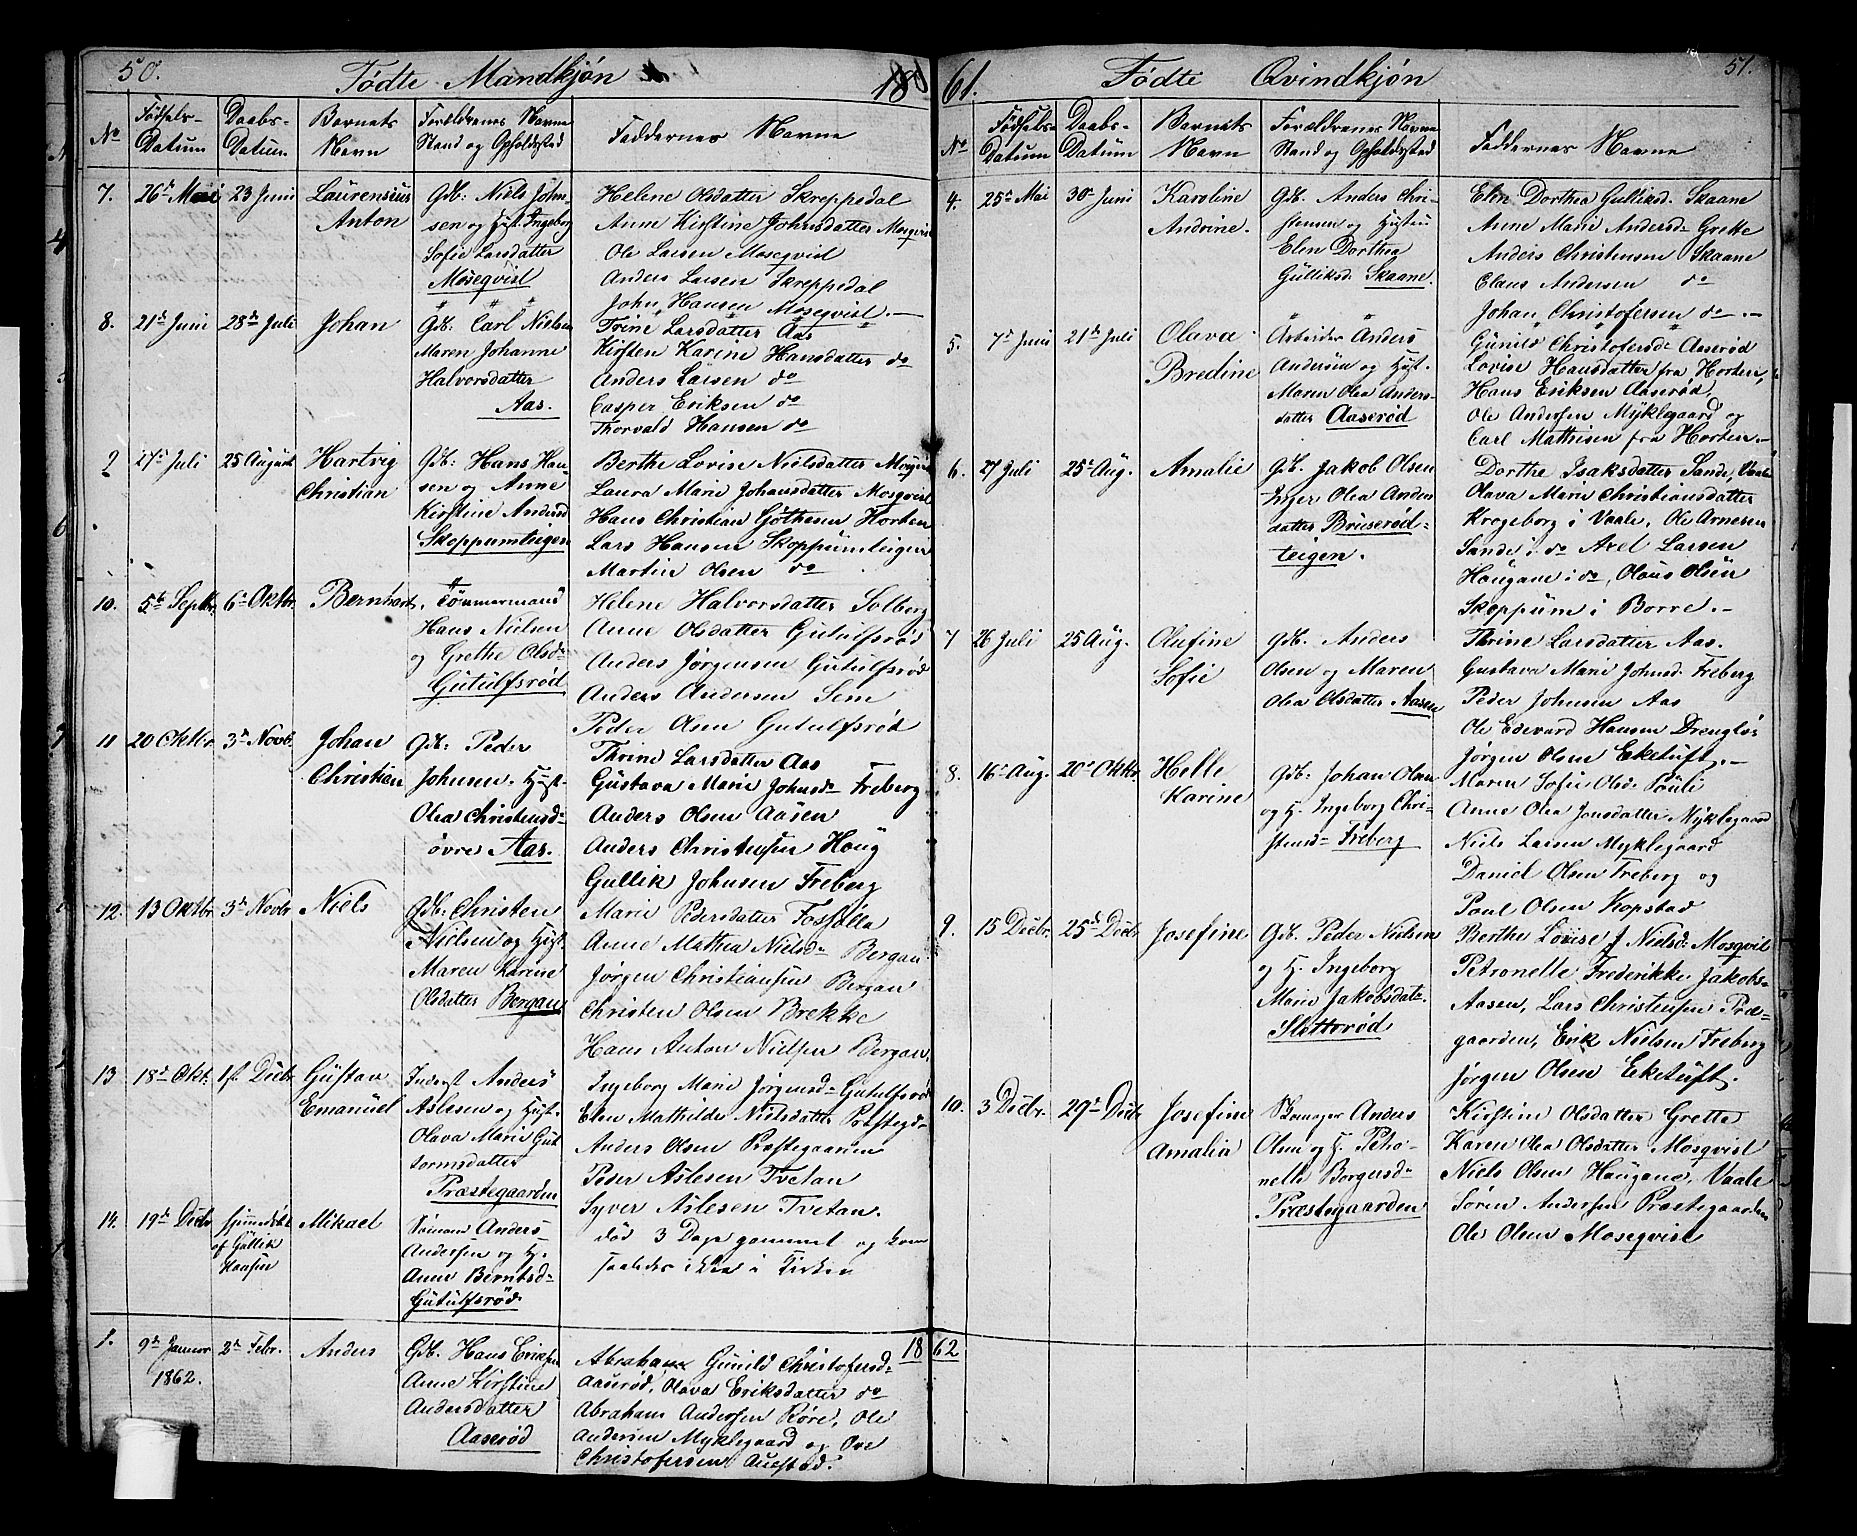 50.
Fødte Mandkjøn
1861.
No
Fødsels-Datum
Daabs-Datum
Barnets Navn
Forældrenes Navne Stand og Opholdssted
Faddernes Navne
7.
26de Mai
23 Juni
Laurensius
Anton
Gdb: Niels John-
sen og Hust. Ingeborg
Sofie Larsdatter
Moseqvist
Helene Olsdatter Skreppedal
Anne Kirstine Johnsdatter Mosqvist
Ole Larsen Moseqvist
Anders Larsen Skreppedal
John Hansen Moseqvist.
8.
21de Juni
28de Juli
Johan
Gdb: Carl Nielsen
Maren Johanne
Halvorsdatter
Aas.
Trine Larsdatter Aas
Kirsten Karine Hansdatter do
Anders Larsen do
Casper Eriksen do
Thorvald Hansen do
27de Juli
25 August
Hartvig
Christian
Gdb: Hans Han-
sen og Anne
Kirstine Andersd
Skoppumteigen
Berthe Lovise Nielsdatter
Laura Marie Johansdatter Mosqvist
Hans Christian Gøthesen Horten
Lars Hansen Skoppumteigen
Martin Olsen do
10.
5te Septbr.
6te Oktbr
Bernhart
Tømmermand
Hans Nielsen
og Grethe Olsd
Gutulfsrød
Helene Halvorsdatter Solberg
Anne Olsdatter Gutulfsrød
Anders Jørgensen Gutulfsrød
Anders Andersen Sem
Peder Olsen Gutulfsrød
11
20 Oktbr.
3de Novb.
Johan
Christian
Gdb: Peder
Johnsen. Hust.
Olea Christensd
øvre Aas.
Thrine Larsdatter Aas
Gustava Marie Johnsd Freberg
Anders Olsen Aasen
Anders Christensen Haug
Gullik Johnsen Freberg
12.
13 Oktbr.
3de Novbr
Niels
Gdb: Christen
Nielsen og Hust.
Maren Karine
Olsdatter Bergan
Marie Pedersdatter
Anne Mathea Nielsd Bergan
Jørgen Christiansen Bergan
Christen Olsen Brekke
Hans Anton Nielsen Bergan.
13
18de Okt.
1st Decbr
Gustav
Emanuel
Inderst Anders
Aslesen og Hust.
Olava Marie Gut
tormsdatter
Præstegaarden
Ingeborg Marie Jørgensd Gutulfsrød
Elen Mathilde Nielsdatter Præstegd
Anders Olsen Præstegaarden
Peder Aslesen Tvetan
Syver Aslesen Tvetan.
14.
19de Decbr
hjemmedøbt
af Gullik
Hansen
Mikael
Anders
Andersen og H.
Anne Berntsd
Gutulfsrød
død 3 Dage gammel og kom
saaledes ikke i Kirken
1862
1.
9de Januar
1862.
2de Febr.
Anders
Gdb. Hans Eriksen
Anne Kirstine
Andersdatter
Aaserød
Abraham Gunild Christofersd
Aaserød, Olava Eriksdatter do
Abraham Andersen Røre, Ole
Andersen Myklegaard og Ove
Christofersen Auestad.
51.
Fødte Qvindkjøn
No
Fødsels-Datum
Daabs-Datum
Barnets Navn
Forældrenes Navne Stand og Opholdssted
Faddernes Navne
4.
25de Mai
30de Juni
Karoline
Andrine.
Gdb. Anders Chri-
stensen og Hustru
Elen Dorthea
Gulliksd. Skaane.
Elen Dorthea Gulliksd. Skaane
Anne Marie Andersd Grette
Anders Christensen Skaane
Claus Andersen do
Johan Christofersen do
5.
7de Juni
21de Juli
Olava
Bredine
Arbeider Anders
Andersen og Hust.
Maren Olea Anders-
datter Aaserød
Gunild Christofersd Aaserød
Lovise Hansdatter fra Horten,
Hans Eriksen Aaserød,
Ole Andersen Myklegaard og
Carl Mathisen fra Horten.
6.
27 Juli
25de Aug.
Amalie
Gdb. Jakob Olsen
Inger Olea Anders
datter Bruserød-
teigen.
Dorthe Isaksdatter Sande, Vaale
Olava Marie Christiansdatter
Krogeborg i Vaale, Ole Arnesen
Sande i do Axel Larsen
Haugane i do, Olaus Olsen
Skoppum i Borre.
7
26 Juli
25 Aug.
Olufine
Sofie
Gdb. Anders
Olsen og Maren
Olea Olsdatter Aasen
Thrine Larsdatter Aas.
Gustava Marie Johnsd. Freberg
Peder Johnsen Aas
Ole Edevard Hansen
Jørgen Olsen Eketuft.
8.
16de Aug.
20de Oktbr
Helle
Karine
Gdb: Johan Olsen
og H. Ingeborg Chri-
stensd Freberg
Maren Sofie Olsd Pauli
Anne Olea Jonsdatter Myklegaard
Niels Larsen Myklegaard
Daniel Olsen Freberg og
Poul Olsen Kopstad
9.
15 Decbr.
25de Decbr
Josefine
Gdb. Peder Nielsen
og H. Ingeborg
Marie Jakobsdat.
Slettorød
Berthe Lovise J Nielsd. Mosqvist
Petronelle Frederikke Jakobs-
Aasen, Lars Christensen Præ-
gaarden, Erik Nielsen Freberg
Jørgen Olsen Eketuft.
10.
3 Decbr.
29de Decbr
Josefine
Amalia
Anders
Olsen og H. Petro-
nelle Borgersd
Præstegaarden
Kirstine Olsdatter Grette
Karen Olea Olsdatter Mosqvist
Niels Olsen Haugane, Vaale
Søren Andersen Præstegaarden
Ole Olsen Moseqvist